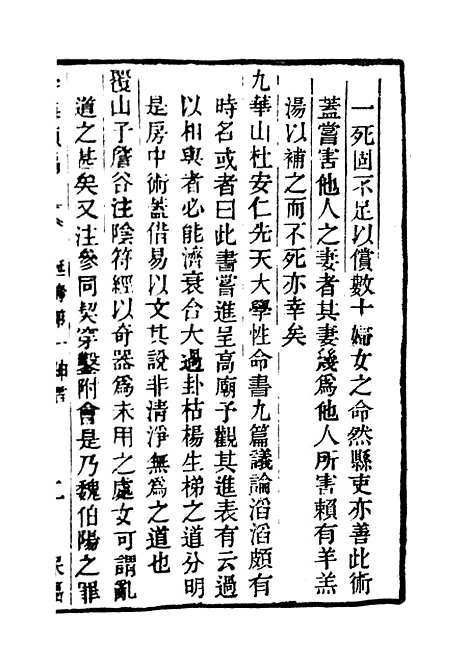 一死固不足以償數十婦女之命然縣吏亦善此術
蓋嘗害他人之妻者其妻幾爲他人所害賴有羊羔
湯以補之而不死亦幸矣
九華山杜安仁先天大學性命書九篇議論滔滔頗有
時名或者曰此書嘗進呈高廟予觀其進表有云過
以相與者必能濟衰合大過卦枯楊生梯之道分明
是房中術蓋借易以文其說非清淨無爲之道也
瑿山子詹谷注陰符經以奇器爲未用之處女可謂亂
道之甚矣又注參同契穿鑿附會是乃魏伯陽之罪